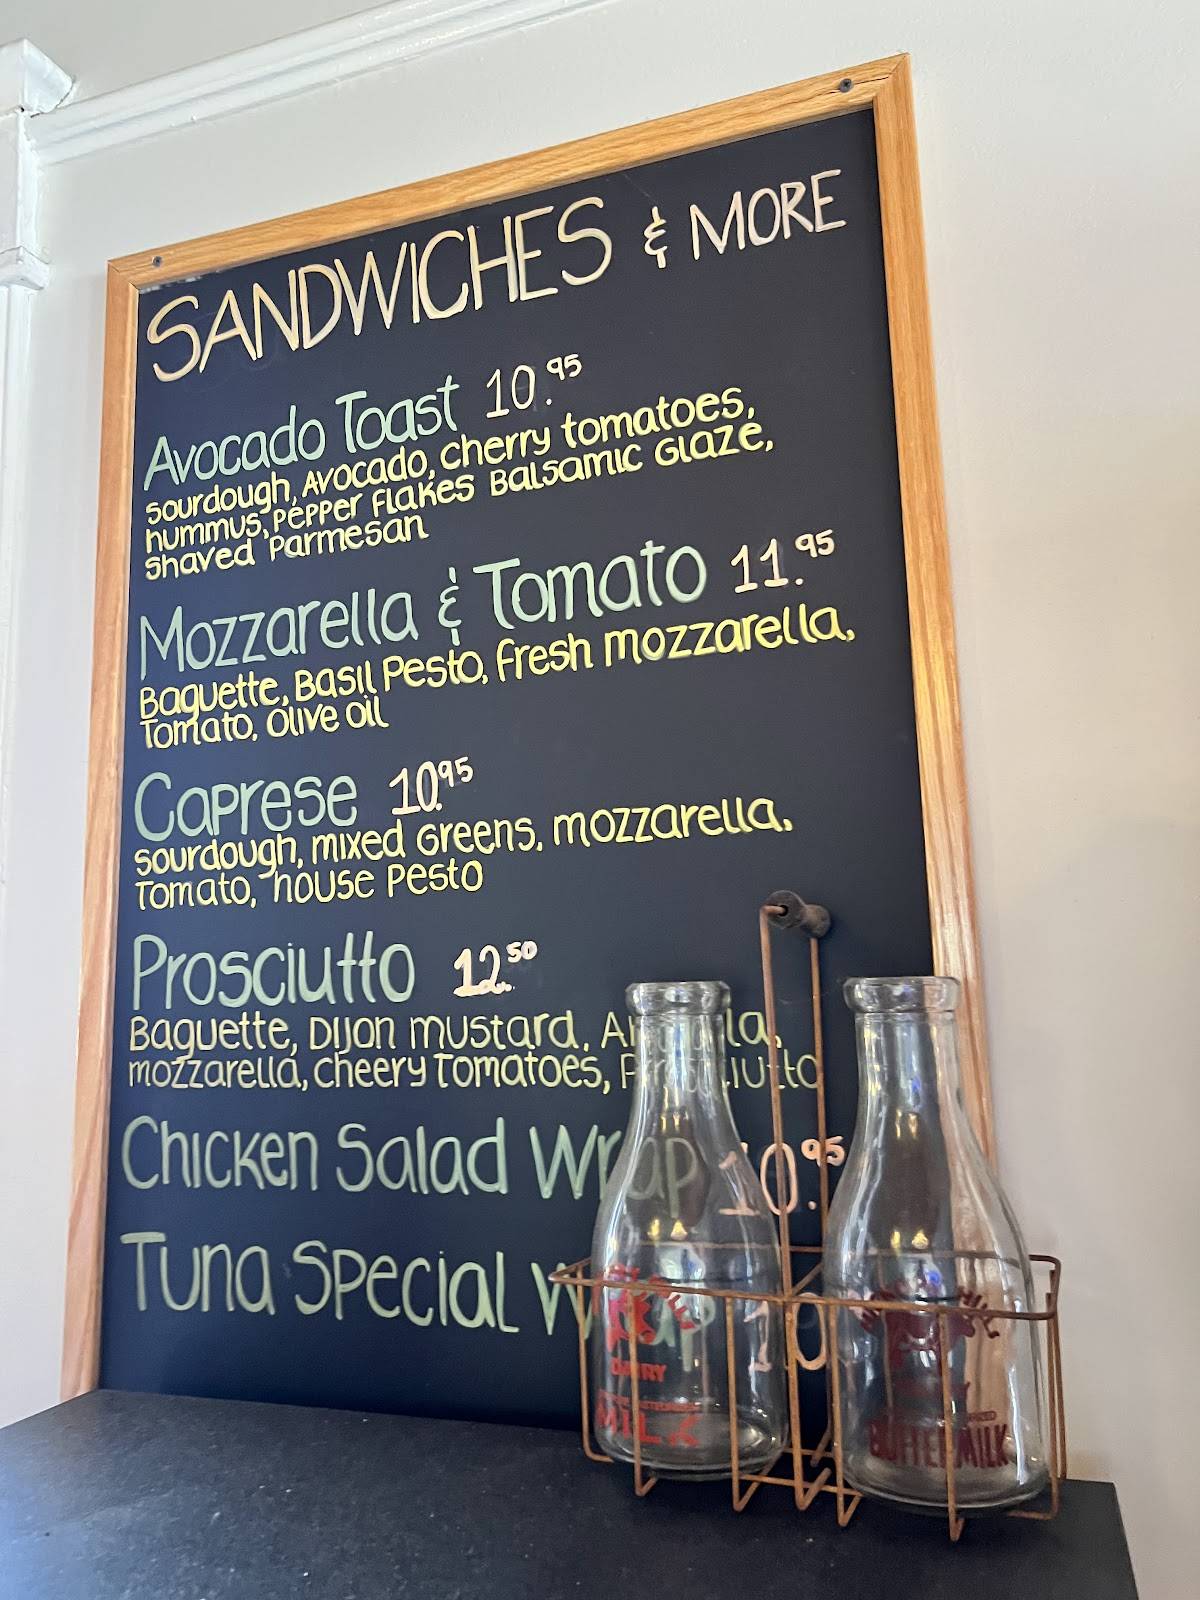 SANDWICHES & MORE
Avocado Toast 10.95
sourdough, Avocado, cherry tomatoes,
hummus, Pepper Flakes Balsamic Glaze,
shaved Parmesan
Mozzarella & Tomato 11.95
Baguette, Basil Pesto, Fresh mozzarella,
Tomato, Olive oil
Caprese 10.95
sourdough, mixed Greens, mozzarella,
Tomato, house Pesto
Prosciutto 12.50
Baguette, Dijon mustard, Arugula,
mozzarella, cheery Tomatoes, Prosciutto
Chicken Salad Wrap 10.95
Tuna Special Wrap 10
DAIRY
MILK
BUTTERMILK